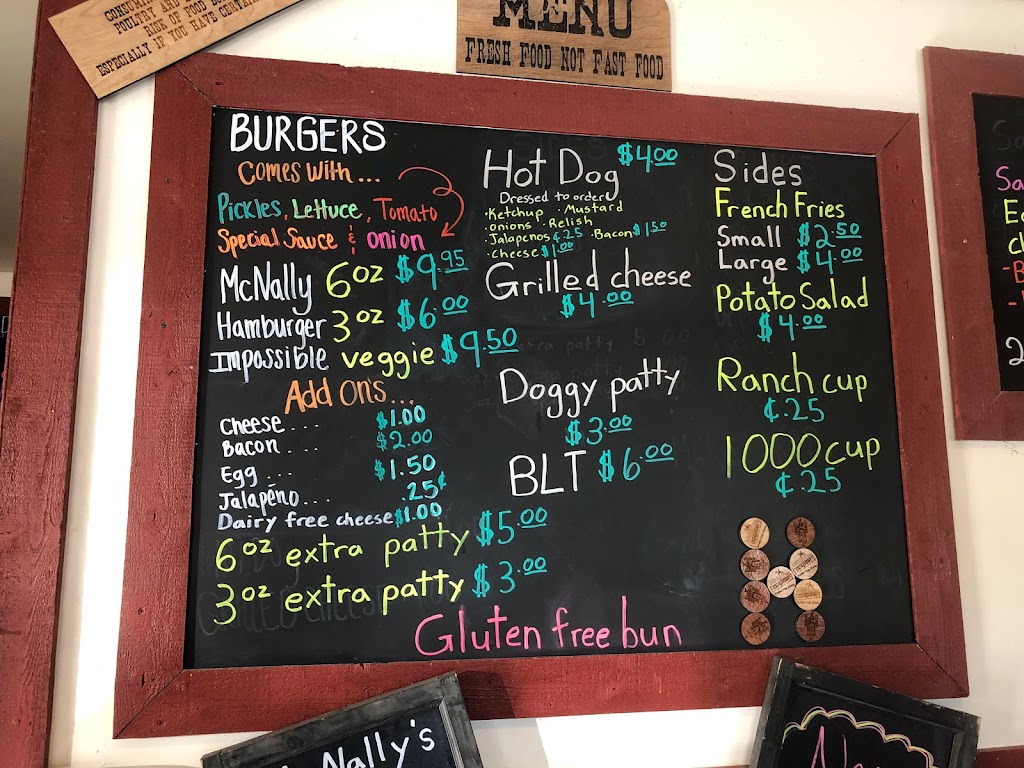 CONSUMI
POULTRY AND
RISK OF FOOD BO
ESPECIALLY IF YOU HAVE CERTAI
MENU
FRESH FOOD NOT FAST FOOD
BURGERS
Comes With...
Pickles, Lettuce, Tomato
Special Sauce & onion
McNally 6oz $9.95
Hamburger 3oz $6.00
Impossible veggie $9.50
Add On's...
Cheese.... $1.00
Bacon.... $2.00
Egg.... $1.50
Jalapeño... .25¢
Dairy free cheese $1.00
6oz extra patty $5.00
3oz extra patty $3.00
Hot Dog $4.00
Dressed to order
·Ketchup ·Mustard
·onions ·Relish
·Jalapenos ¢.25 ·Bacon $1.50
·cheese $1.00
Grilled cheese
$4.00
Doggy patty
$3.00
BLT $6.00
Sides
French Fries
Small $2.50
Large $4.00
Potato Salad
$4.00
Ranch cup
¢.25
1000 cup
¢.25
Gluten free bun
Nally's